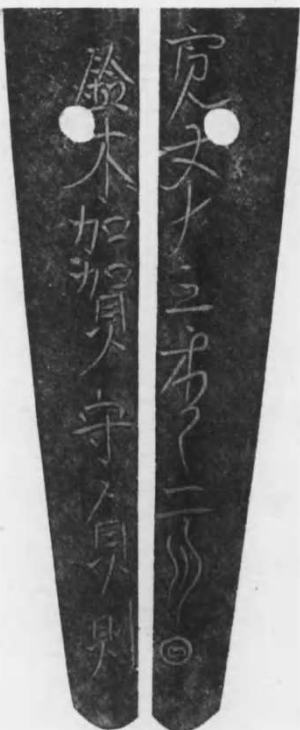 寛文十三季二月日
鈴木加賀守貞則